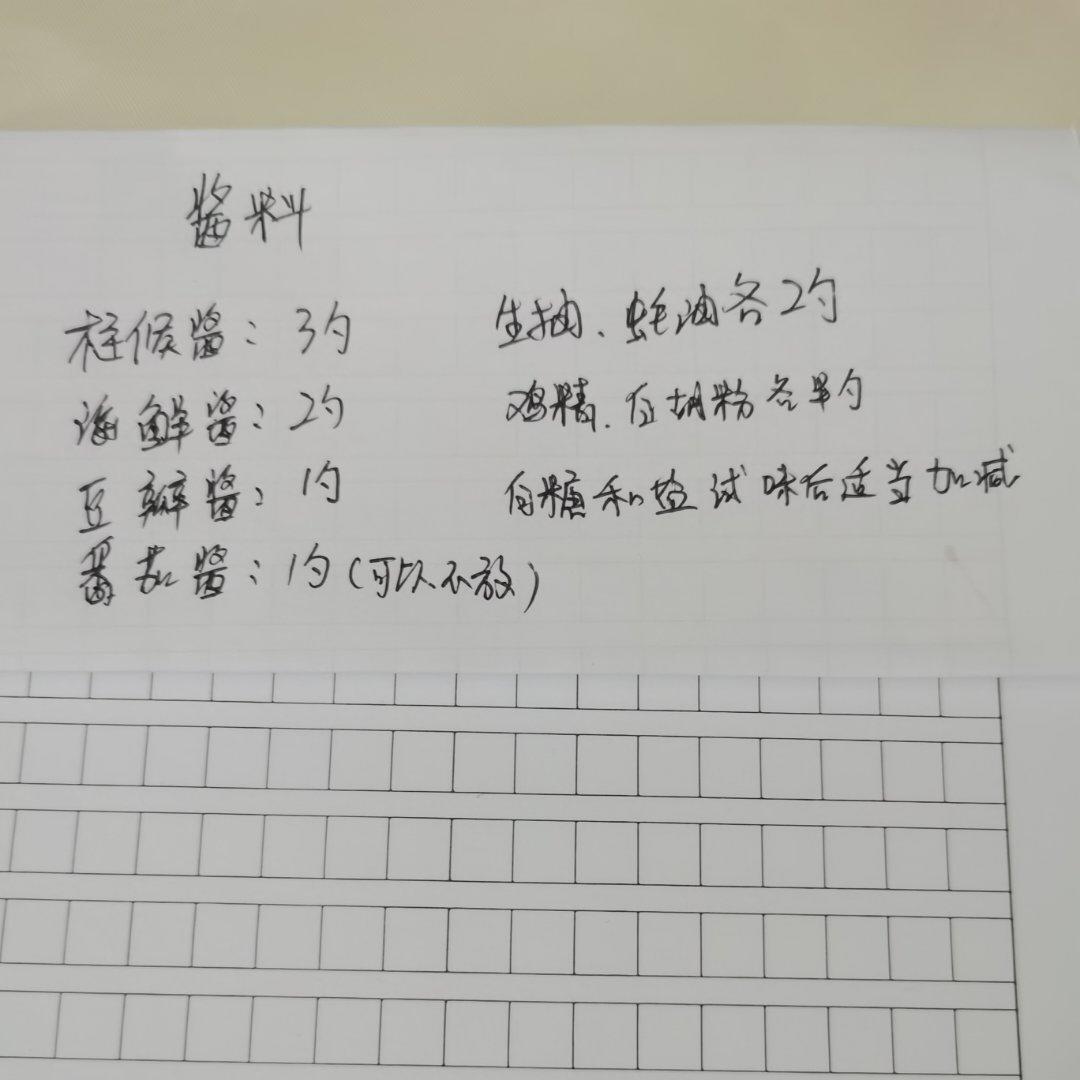 酱料
柱候酱：3勺
海鲜酱：2勺
豆瓣酱：1勺
番茄酱：1勺（可以不放）
生抽、蚝油各2勺
鸡精、白胡粉各半勺
白糖和盐试味后适当加减